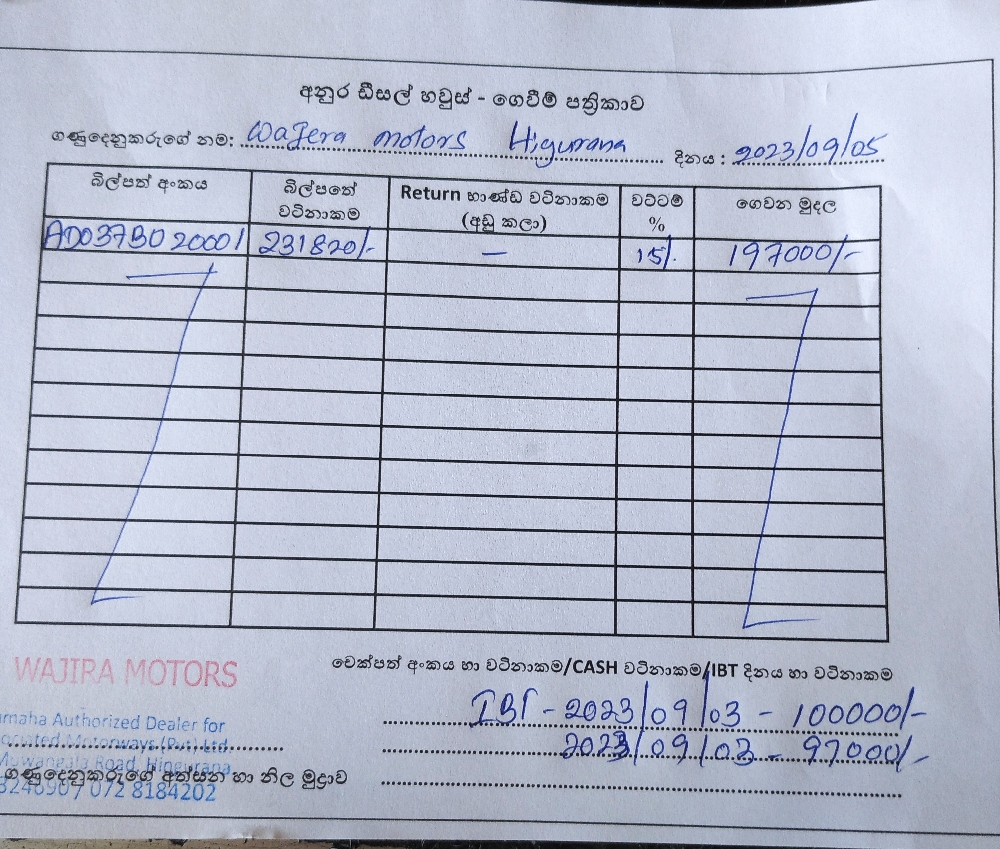 අනුර ඩීසල් හවුස් - ගෙවීම් පත්‍රිකාව
ගණුදෙනුකරුගේ නම: Wajera motors Higurana දිනය : 2023/09/05
බිල්පත් අංකය බිල්පතේ වටිනාකම Return භාණ්ඩ වටිනාකම (අඩු කලා) වට්ටම් % ගෙවන මුදල
AD037B020001 231820/- — 15%. 197000/-
WAJIRA MOTORS
චෙක්පත් අංකය හා වටිනාකම/CASH වටිනාකම/IBT දිනය හා වටිනාකම
IBT - 2023/09/03 - 100000/-
Authorized Dealer for
2023/09/03 - 97000/-
Motorways (Pvt) Ltd
Road, Hingurana
ගණුදෙනුකරුගේ අත්සන හා නිල මුද්‍රාව
072 8184202